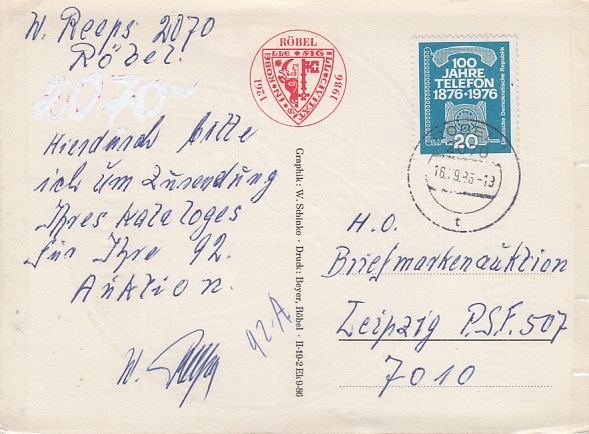 W. Reeps 2070
Röbel.
2070
Hierdurch bitte
ich um Zusendung
Ihres Kataloges
für Ihre 92.
Auktion.
W. Reeps
92-A
RÖBEL
1261
1986
Graphik: W. Schinko · Druck: Beyer, Röbel · II-19-2 Ek 9-86
100
JAHRE
TELEFON
1876·1976
20
Deutsche Demokratische Republik
t
H.O.
Briefmarkenauktion
Leipzig P.S.F. 507
7010